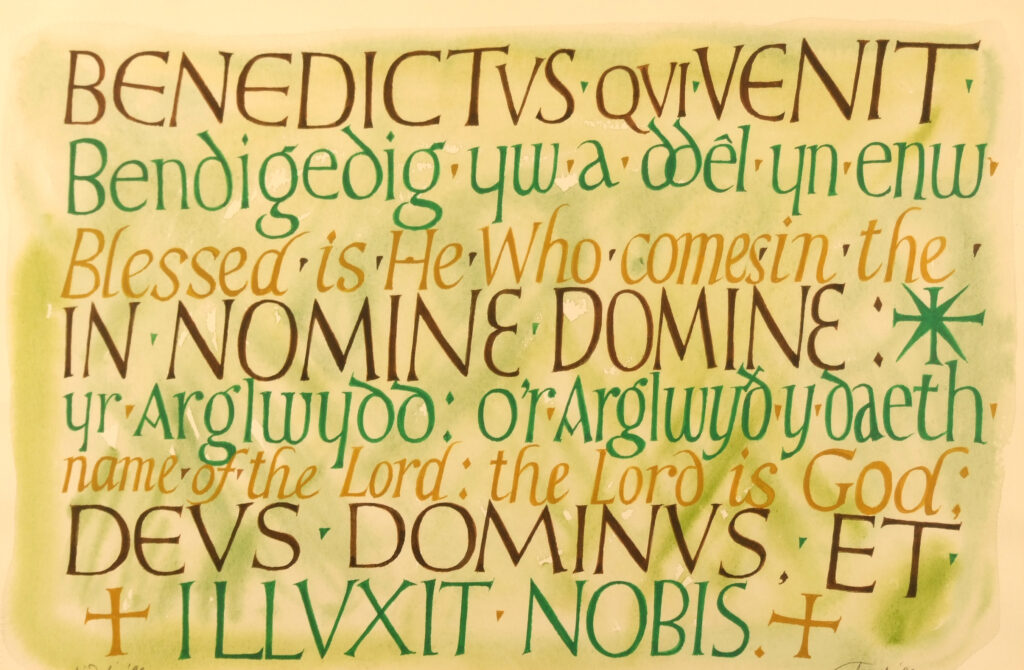 BENEDICTVS · QVI · VENIT ·
Bendigedig · yw · a · ddêl · yn · enw ·
Blessed · is · He · Who · comes in · the ·
IN · NOMINE · DOMINE :
yr · Arglwydd : o'r · Arglwydd · y · daeth ·
name · of · the Lord : the Lord is God ;
DEVS · DOMINVS , · ET ·
ILLVXIT · NOBIS .